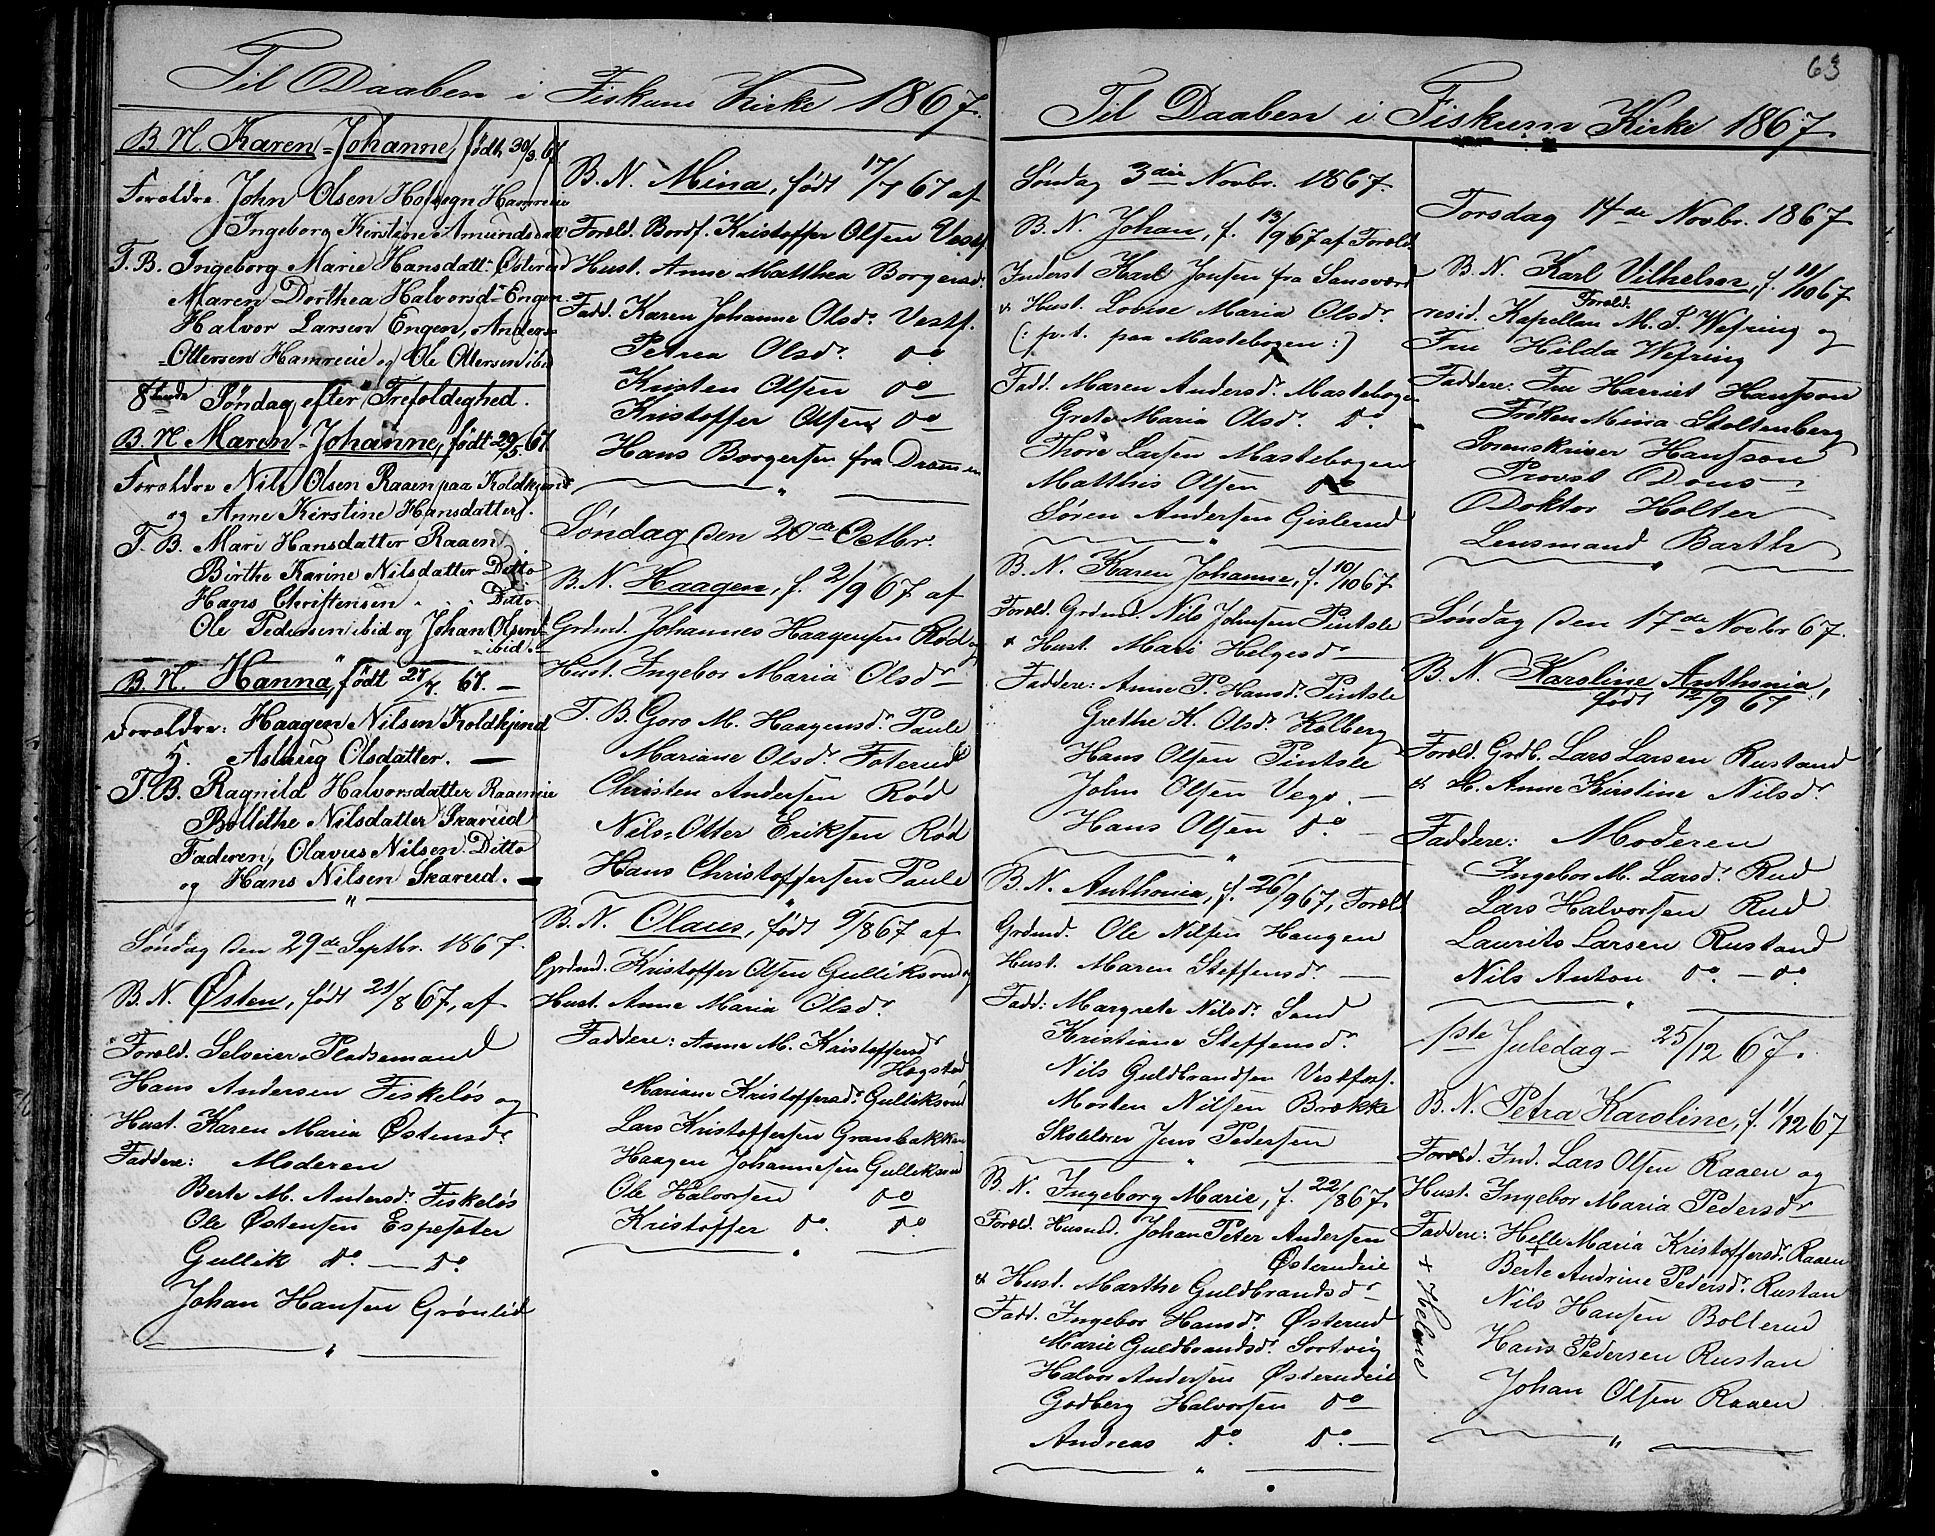 Til Daaben i Fiskum Kirke 1867.
B. N. Karen-Johanne, født 30/3 67
Foreldre. John Olsen
Ingeborg Kirstine Amundsdatt
T. B. Ingeborg Marie Hansdatt. Østerud
Maren Dorthea Halvorsd. Engen
Halvor Larsen Engen, Anders-
Ottersen Hamreeie og Ole Ottersen ibid
8tende Søndag efter Trefoldighed.
B. N. Maren-Johanne, født 29/5 67
Foreldre Nils Olsen Raaen paa Koldkjend
og Anne Kirstine Hansdatter.
T. B. Mari Hansdatter Raaen
Birthe Karine Nilsdatter Ditto
Hans Christensen . . Ditto
Ole Pedersen ibid og Johan Olsen
ibid.
B. N. Hanna, født 27/7. 67. —
Foreldre: Haagen Nilsen Koldkjend
H. Aslaug Olsdatter. —
T. B. Ragnild Halvorsdatter Raaeneie
Bollethe Nilsdatter Skarud
Faderen, Olavus Nilsen Ditto
og Hans Nilsen Skarud. —
Søndag den 29de Septbr. 1867.
B. N. Østen, født 21/8 67, af
Foreld. Selveier Pladsemand
Hans Andersen Fiskeløs og
Hust. Karen Maria Østensdr
Faddere: Moderen
Berte M. Andersdr Fiskeløs
Ole Østensen Espeseter
Gullik do. — do.
Johan Hansen Grønlid
B. N. Mina, født 17/7 67 af
Foreld. Bordf. Kristoffer Olsen Vestf.
Hust. Anne Matthea Borgersd.
Fadd. Karen Johanne Olsdr. Vestf.
Petrea Olsdr. do
Kristen Olsen do
Kristoffer Olsen do
Hans Borgersen fra Drammen
Søndag den 20de Octbr.
B. N. Haagen, f. 2/9 67 af
Grdmd. Johannes Haagensen Rød og
Hust. Ingebor Maria Olsdr
T. B. Goro M. Haagensdr Paule
Mariane Olsdr. Foterud
Christen Andersen Rød
Nils-Otter Eriksen Rød
Hans Christoffersen Paule
B. N. Olaus, født 9/8 67 af
Grdmd. Kristoffer Olsen Gulliksrud og
Hust. Anne Maria Olsdr.
Faddere: Anne M. Kristoffersdr
Hogstad
Mariane Kristoffersdr. Gulliksrud
Lars Kristoffersen Granbakken
Haagen Johannesen Gulliksrud
Ole Halvorsen do
Kristoffer do. do.
63
Til Daaben i Fiskum Kirke 1867.
Søndag 3die Novbr. 1867.
B. N. Johan, f. 13/9 67 af Foreld.
Inderst Karl Jonsen fra Sansverd
& Hust. Lovise Maria Olsdr.
(: p. t. paa Mastebogen :)
Fadd. Maren Andersdr. Mastebogen
Grete Maria Olsdr. do.
Thore Larsen Mastebogen
Matthis Olsen do
Søren Andersen Gislerud
B. N. Karen Johanne, f. 10/10 67.
Foreld. Grdmd. Nils Johnsen Pintsle
& Hust. Mari Helgesdr
Faddere: Anne P. Hansdr. Pintsle
Grethe K. Olsdr. Kolberg
Hans Olsen Pintsle
John Olsen Vego. —
Hans Olsen do. —
B. N. Anthonia, f. 26/9 67, Foreld.
Grdmd. Ole Nilsen Haugen
Hust. Maren Steffensdr —
Fadd: Margrete Nilsdr. Sand
Kristiane Steffensdr.
Nils Guldbrandsen Vestfos.
Morten Nilsen Brække
Skolelærer Jens Pedersen
B. N. Ingeborg Marie, f. 22/8 67.
Foreld. Husmd. Johan Peter Andersen
Østerudeie
& Hust. Marthe Guldbrandsdr
Fadd. Ingebor Hansdr. Østerud
Marie Guldbrandsdr. Sortvig
Halvor Andersen Østerudeie
Godberg Halvorsen do
Andreas do. do. —
Torsdag 14de Novbr. 1867.
B. N. Karl Vilhelm, f. 11/10 67
Foreld:
resid. Kapellan M. S. Wefring og
Fru Hilda Wefring
Faddere: Fru Harriet Hansson
Frøken Mina Stoltenberg
Sorenskriver Hansson
Provst Dons
Doktor Holter
Lensmand Barth
Søndag den 17de Novbr 67.
B. N. Karoline Anthonia,
født 12/9 67
Foreld. Grdb. Lars Larsen Rustand
& H. Anne Kirstine Nilsdr.
Faddere: Moderen
Ingebor M. Larsdr. Rud
Lars Halvorsen Rud
Laurits Larsen Rustand
Nils Anton do — do.
1ste Juledag — 25/12 67.
B. N. Petra Karoline, f. 1/12 67
Foreld. Ind. Lars Olsen Raaen og
Hust. Ingebor Maria Pedersdr
Faddere: Helle Maria Kristoffersdr. Raaen
+
Berte Andrine Pedersdr. Rustan
Nils Hansen Bollerud
Hans Pedersen Rustan
Johan Olsen Raaen
+ Helene